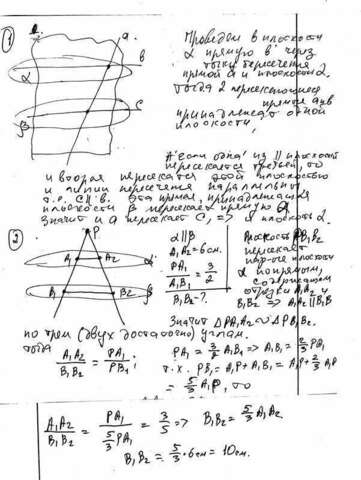 1
a
в
α
β
c
Проведем в плоскости
α прямую в через
точку пересечения
прямой a и плоскости α.
Тогда 2 пересекающиеся
прямые a и в
принадлежат одной
плоскости,
А если одна из || плоскост
пересекается третьей, то
и вторая пересекается этой плоскостью
и линии пересечения параллельны
т.е. c||в. Эта прямая, принадлежащая
плоскости β пересекает прямую a
значит и a пересекает c, => и плоскость α.
2
P
A₁
A₂
α
B₁
B₂
β
α||β
A₁A₂=6см.
PA₁/A₁B₁ = 3/2
B₁B₂-?
Плоскость PB₁B₂
пересекает
пар-ые плоскост
α по прямым,
содержащим
отрезки A₁A₂ и
B₁B₂ => A₁A₂||B₁B₂
Значит ΔPA₁A₂~ΔPB₁B₂.
по трем (двух достаточно) углам.
Тогда
A₁A₂/B₁B₂ = PA₁/PB₁;
PA₁=3/2 A₁B₁ => A₁B₁=2/3 PA₁
т.к. PB₁=A₁P+A₁B₁=A₁P+2/3 A₁P
= 5/3 A₁P, то
A₁A₂/B₁B₂ = PA₁/(5/3 PA₁) = 3/5 => B₁B₂=5/3 A₁A₂.
B₁B₂=5/3·6см=10см.